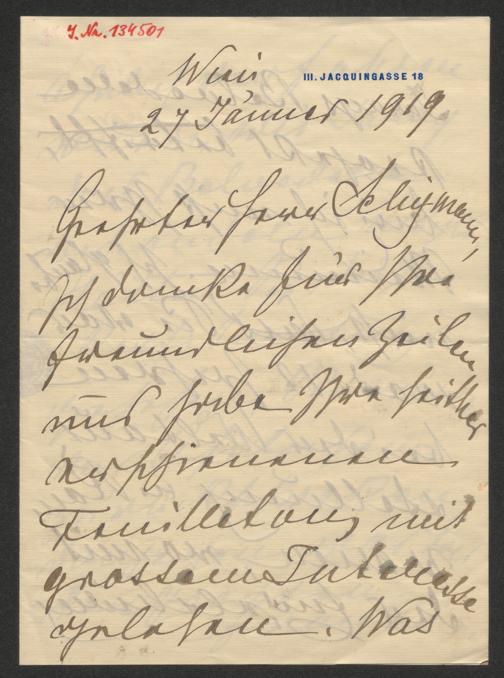 J. No. 134501
Wien
III. JACQUINGASSE 18
27 Jänner 1919
Geehrter Herr Seligmann,
Ich danke für Ihre
freundlichen Zeilen
und habe Ihre seither
erschienenen
Feuilletons mit
grossem Interesse
gelesen. Was